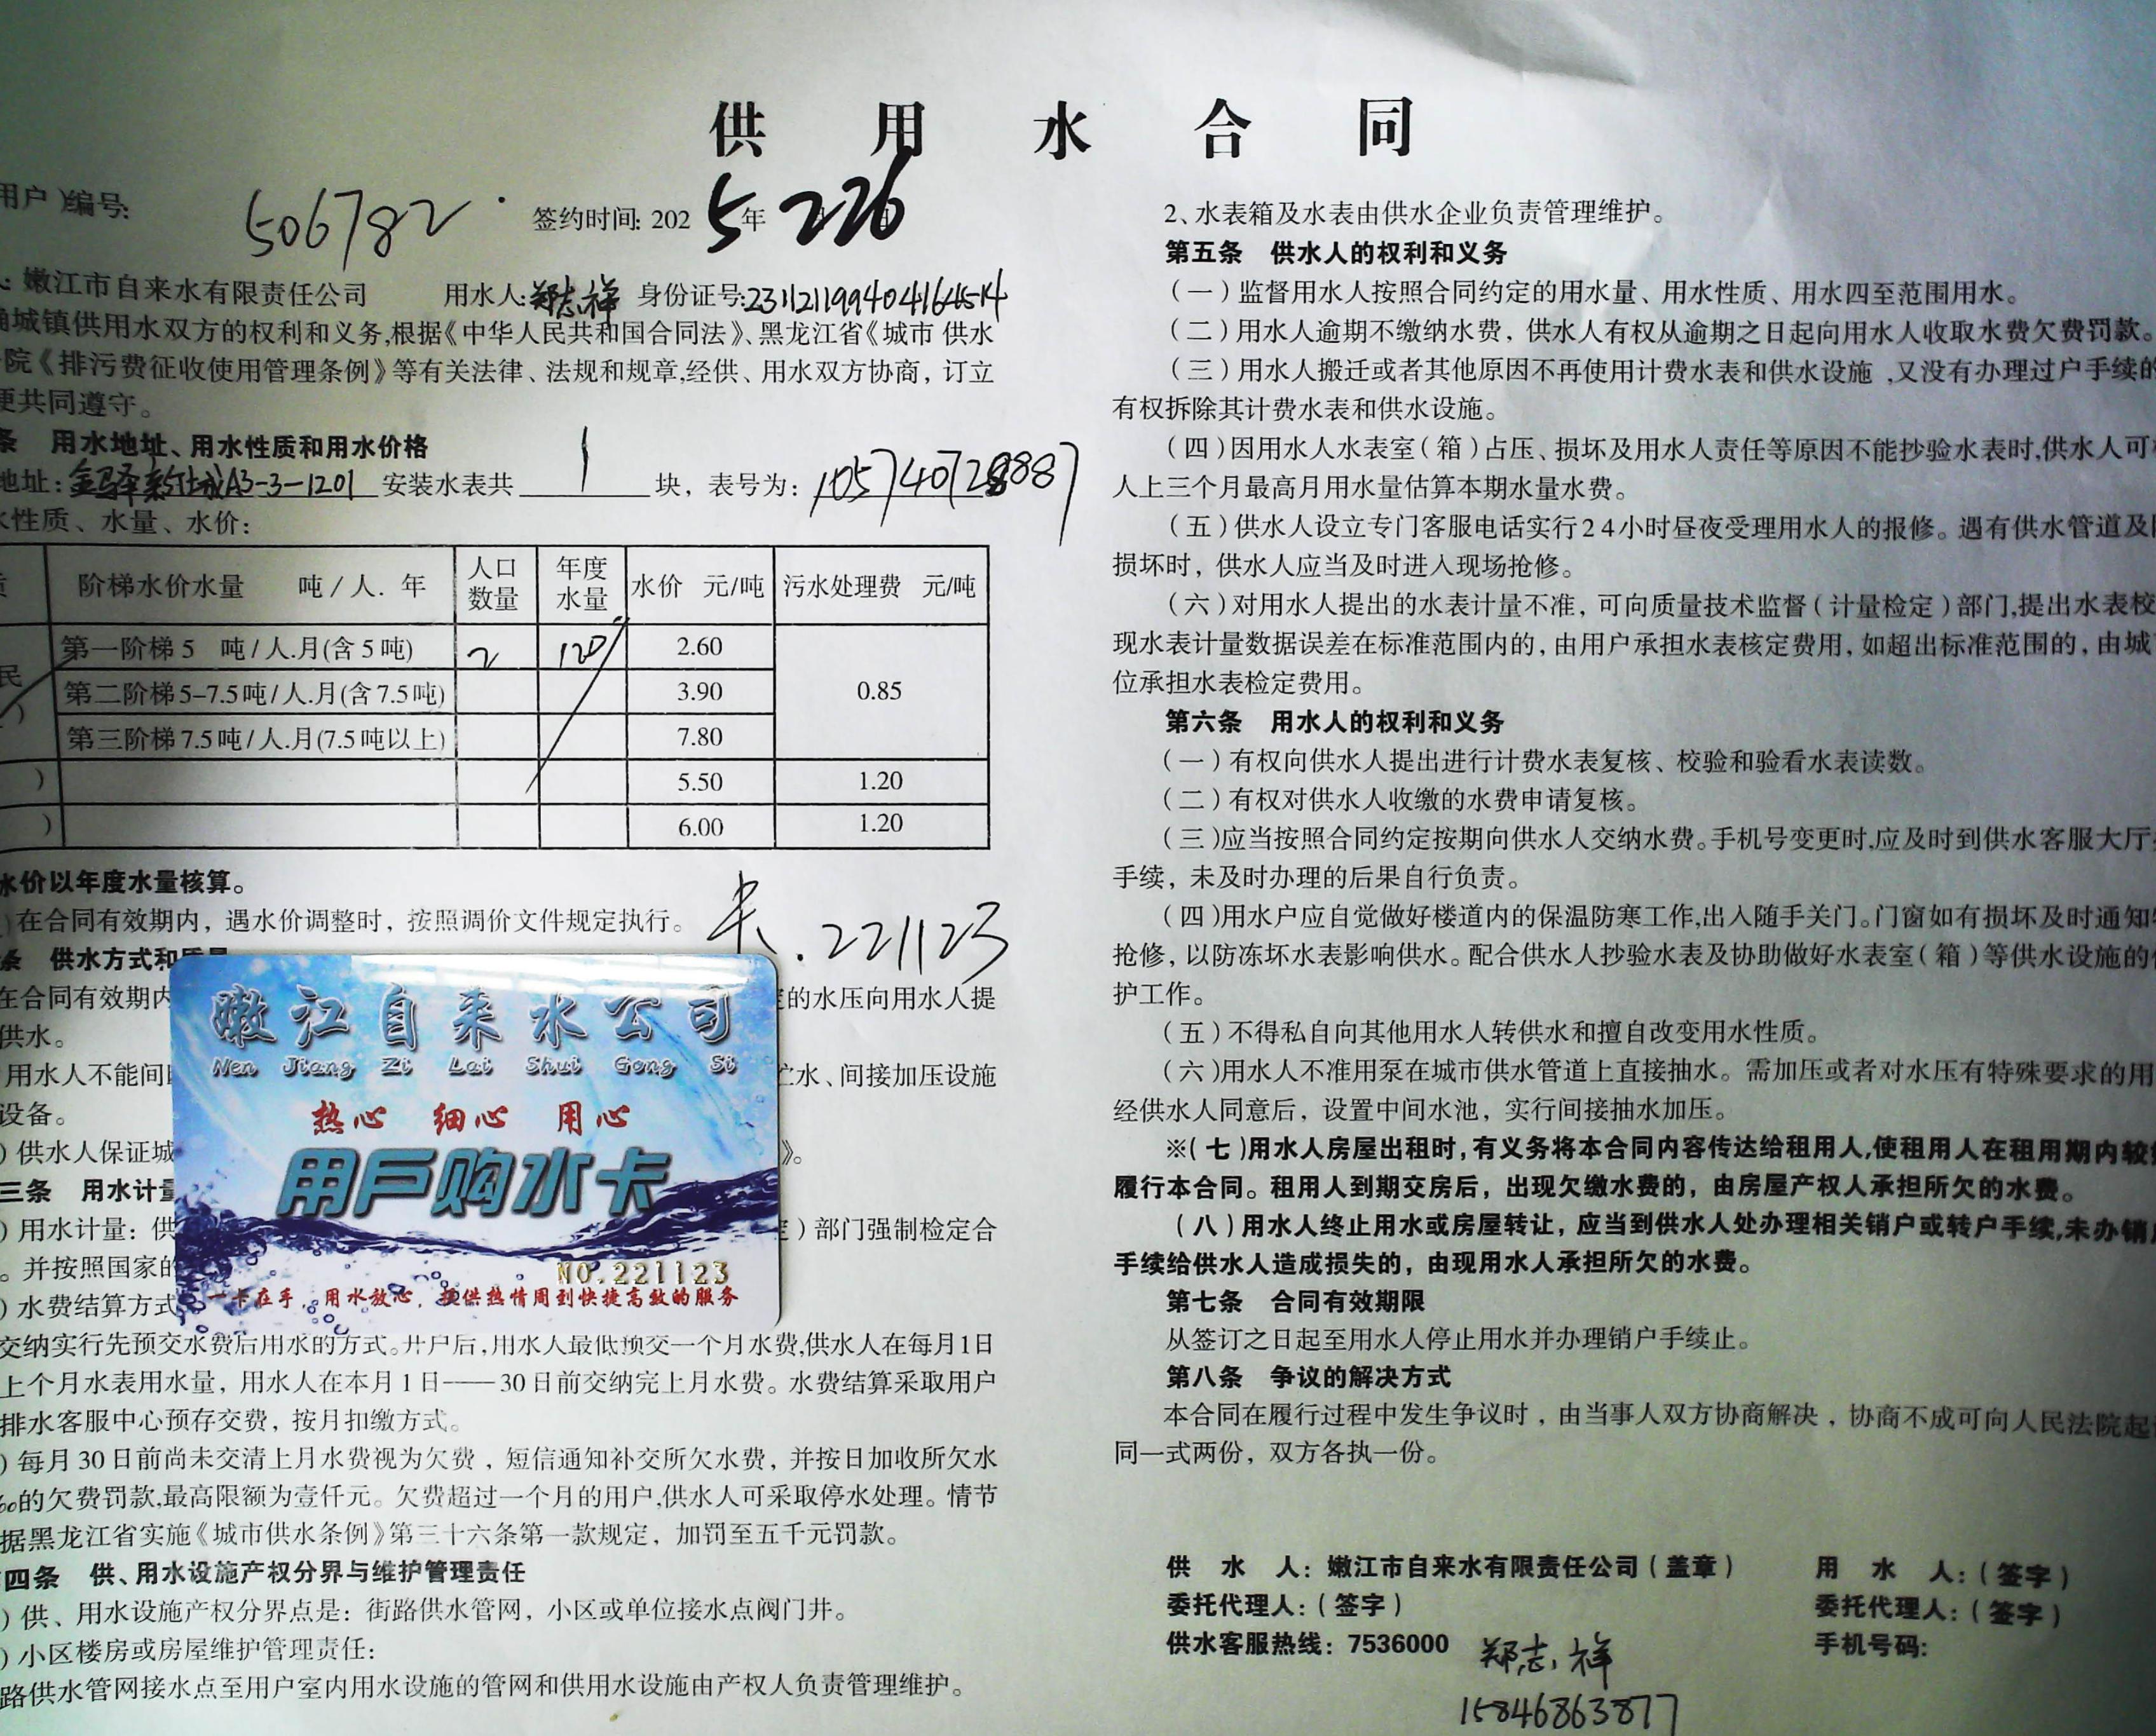 供 用 水 合 同
用户)编号: 506782
签约时间: 2025年 2 26
: 嫩江市自来水有限责任公司 用水人: 郑志祥 身份证号:
城镇供用水双方的权利和义务,根据《中华人民共和国合同法》、黑龙江省《城市 供水
院《排污费征收使用管理条例》等有关法律、法规和规章,经供、用水双方协商，订立
更共同遵守。
条 用水地址、用水性质和用水价格
地址: A3-3-1201 安装水表共 1 块，表号为:
水性质、水量、水价:
阶梯水价水量 吨/人. 年 人口数量 年度水量 水价 元/吨 污水处理费 元/吨
民 第一阶梯 5 吨/人.月(含 5 吨) 2 120 2.60 0.85
第二阶梯 5-7.5 吨/人.月(含 7.5 吨) 3.90
第三阶梯 7.5 吨/人.月(7.5 吨以上) 7.80
) 5.50 1.20
) 6.00 1.20
水价以年度水量核算。
)在合同有效期内，遇水价调整时，按照调价文件规定执行。
卡.221123
条 供水方式和质量
在合同有效期内 的水压向用水人提
供水。
用水人不能间 贮水、间接加压设施
设备。
) 供水人保证城 》。
三条 用水计量
) 用水计量：供 ) 部门强制检定合
。并按照国家的
) 水费结算方式
嫩江自来水公司
Nen Jiang Zi Lai Shui Gong Si
热心 细心 用心
用戶购水卡
NO.221123
一卡在手，用水放心，提供热情周到快捷高效的服务
交纳实行先预交水费后用水的方式。开户后,用水人最低预交一个月水费,供水人在每月1日
上个月水表用水量，用水人在本月 1 日——30 日前交纳完上月水费。水费结算采取用户
排水客服中心预存交费，按月扣缴方式。
) 每月 30 日前尚未交清上月水费视为欠费，短信通知补交所欠水费，并按日加收所欠水
‰的欠费罚款,最高限额为壹仟元。欠费超过一个月的用户,供水人可采取停水处理。情节
据黑龙江省实施《城市供水条例》第三十六条第一款规定，加罚至五千元罚款。
四条 供、用水设施产权分界与维护管理责任
) 供、用水设施产权分界点是：街路供水管网，小区或单位接水点阀门井。
) 小区楼房或房屋维护管理责任:
路供水管网接水点至用户室内用水设施的管网和供用水设施由产权人负责管理维护。
2、水表箱及水表由供水企业负责管理维护。
第五条 供水人的权利和义务
(一)监督用水人按照合同约定的用水量、用水性质、用水四至范围用水。
(二)用水人逾期不缴纳水费，供水人有权从逾期之日起向用水人收取水费欠费罚款。
(三)用水人搬迁或者其他原因不再使用计费水表和供水设施 ,又没有办理过户手续的
有权拆除其计费水表和供水设施。
(四)因用水人水表室(箱)占压、损坏及用水人责任等原因不能抄验水表时,供水人可
人上三个月最高月用水量估算本期水量水费。
(五)供水人设立专门客服电话实行24小时昼夜受理用水人的报修。遇有供水管道及
损坏时，供水人应当及时进入现场抢修。
(六)对用水人提出的水表计量不准，可向质量技术监督(计量检定)部门,提出水表校
现水表计量数据误差在标准范围内的，由用户承担水表核定费用，如超出标准范围的，由城
位承担水表检定费用。
第六条 用水人的权利和义务
(一)有权向供水人提出进行计费水表复核、校验和验看水表读数。
(二)有权对供水人收缴的水费申请复核。
(三)应当按照合同约定按期向供水人交纳水费。手机号变更时,应及时到供水客服大厅
手续，未及时办理的后果自行负责。
(四)用水户应自觉做好楼道内的保温防寒工作,出入随手关门。门窗如有损坏及时通知
抢修，以防冻坏水表影响供水。配合供水人抄验水表及协助做好水表室(箱)等供水设施的
护工作。
(五)不得私自向其他用水人转供水和擅自改变用水性质。
(六)用水人不准用泵在城市供水管道上直接抽水。需加压或者对水压有特殊要求的用
经供水人同意后，设置中间水池，实行间接抽水加压。
※(七)用水人房屋出租时,有义务将本合同内容传达给租用人,使租用人在租用期内较
履行本合同。租用人到期交房后，出现欠缴水费的，由房屋产权人承担所欠的水费。
(八)用水人终止用水或房屋转让，应当到供水人处办理相关销户或转户手续,未办销
手续给供水人造成损失的，由现用水人承担所欠的水费。
第七条 合同有效期限
从签订之日起至用水人停止用水并办理销户手续止。
第八条 争议的解决方式
本合同在履行过程中发生争议时，由当事人双方协商解决，协商不成可向人民法院起
同一式两份，双方各执一份。
供 水 人：嫩江市自来水有限责任公司(盖章) 用 水 人:(签字)
委托代理人:(签字) 委托代理人:(签字)
供水客服热线：7536000 郑志祥 手机号码:
15846863877